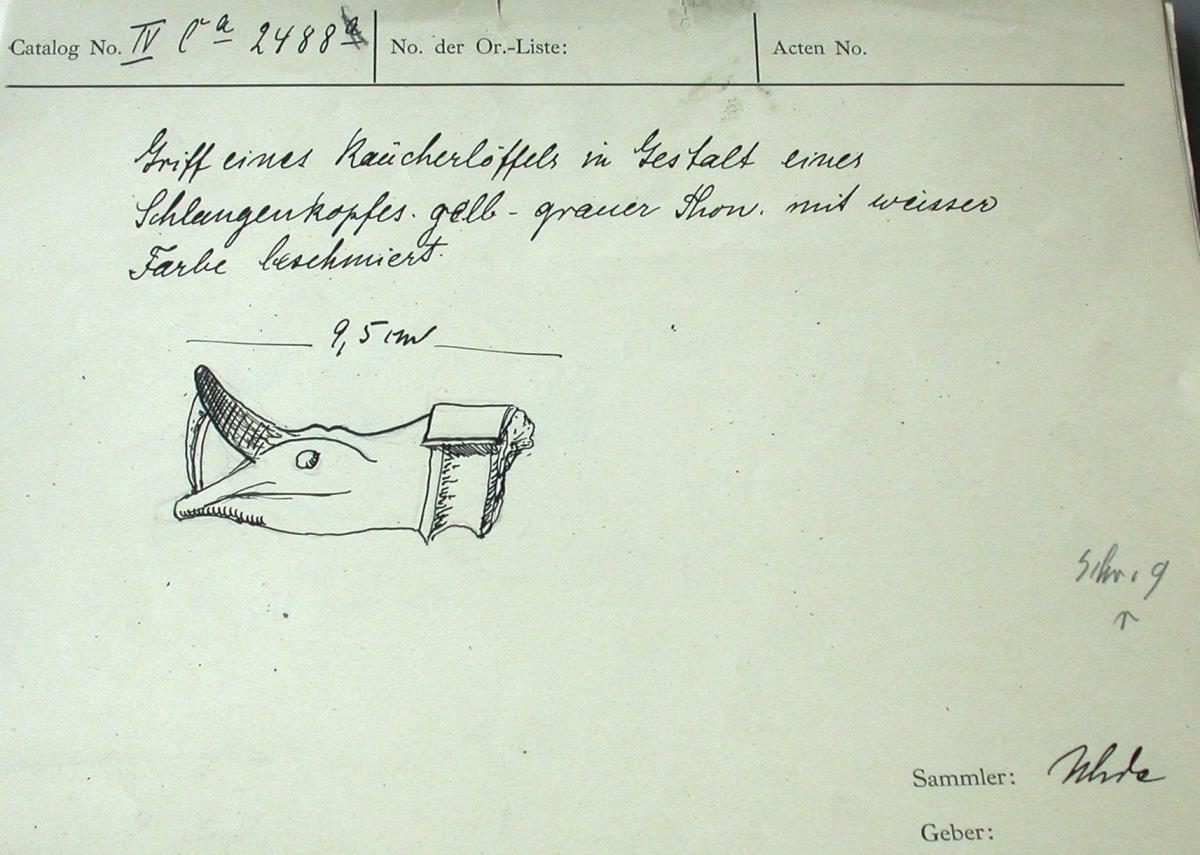 Catalog No. IV Ca 2488a No. der Or.-Liste: Acten No.
Griff eines Räucherlöffels in Gestalt eines
Schlangenkopfes. gelb-grauer Thon. mit weisser
Farbe beschmiert.
9,5 cm
Sammler: Uhde
Geber: